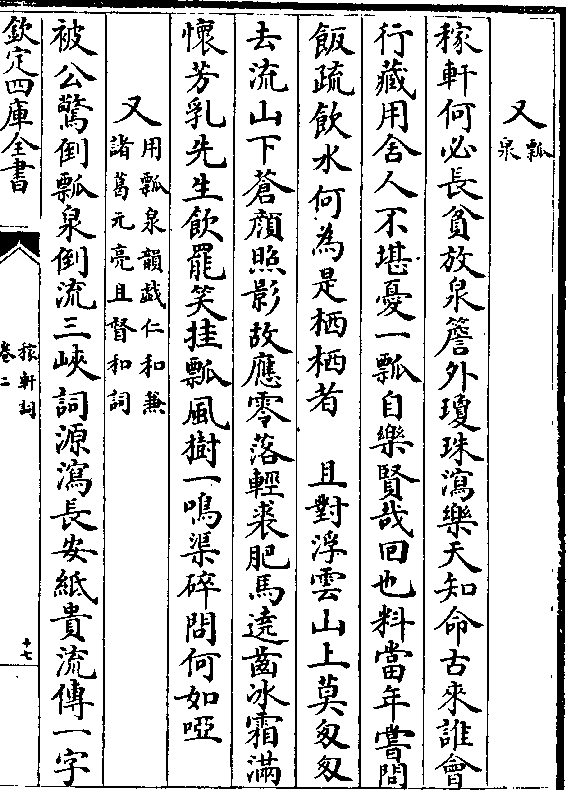 又瓢泉
稼軒何必長貧放泉簷外瓊珠瀉樂天知命古來誰會
行藏用舍人不堪憂一瓢自樂賢哉回也料當年嘗問
飯疏飲水何為是栖栖者　且對浮雲山上莫匆匆
去流山下蒼顔照影故應零落輕裘肥馬遶齒冰霜滿
懷芳乳先生飲罷笑挂瓢風樹一鳴渠碎問何如啞
又用瓢泉韻戯仁和兼
諸葛元亮且督和詞
被公驚倒瓢泉倒流三峽詞源瀉長安紙貴流傳一字
欽定四庫全書
稼軒詞
卷二
十七